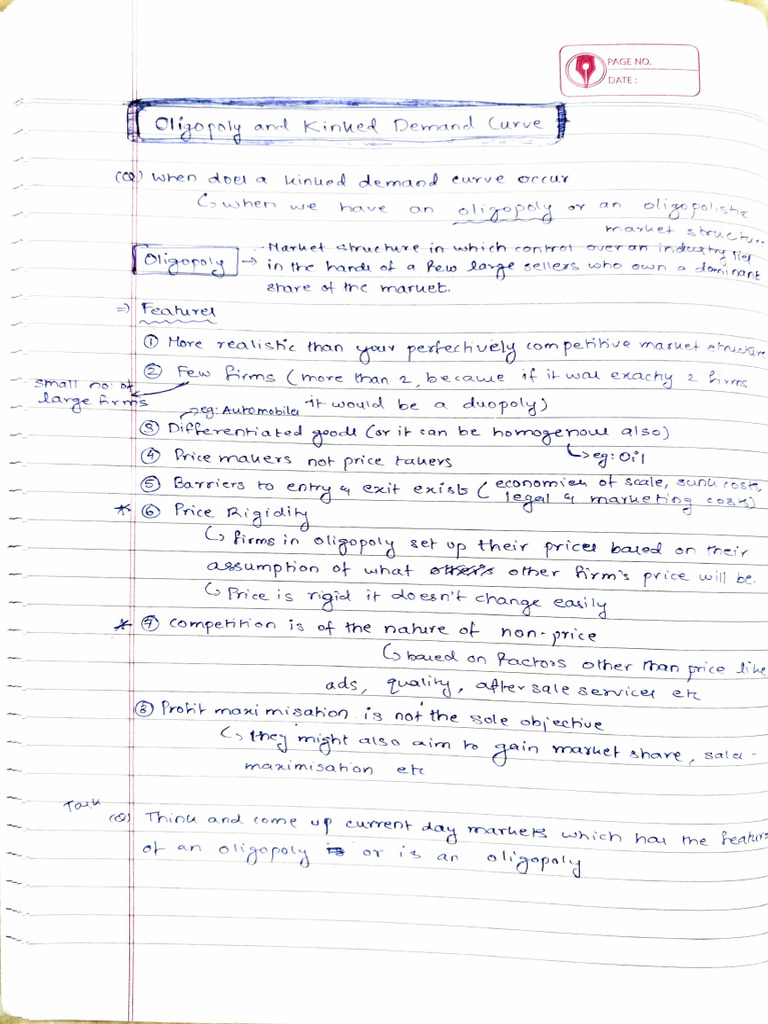 PAGE NO.
DATE :
Oligopoly and Kinked Demand Curve
(Q) When does a kinked demand curve occur
↳ when we have an oligopoly or an oligopolistic
market structure
Oligopoly → . Market structure in which control over an industry lies
in the hands of a few large sellers who own a dominant
share of the market.
⇒ Features
① More realistic than your perfectively competitive market structure
② Few firms (more than 2, because if it was exactly 2 firms
small no. of
large firms
it would be a duopoly)
eg: Automobiles
③ Differentiated goods (or it can be homogenous also)
↳ eg: Oil
④ Price makers not price takers
⑤ Barriers to entry & exit exists (economies of scale, sunk costs,
legal & marketing costs)
* ⑥ Price Rigidity
↳ firms in oligopoly set up their prices based on their
assumption of what other firm's price will be.
↳ Price is rigid it doesn't change easily
* ⑦ competition is of the nature of non-price
↳ based on factors other than price like
ads, quality, after sale services etc
⑧ Profit maximisation is not the sole objective
↳ they might also aim to gain market share, sales-
maximisation etc
Task
(Q) Think and come up current day markets which has the features
of an oligopoly or is an oligopoly